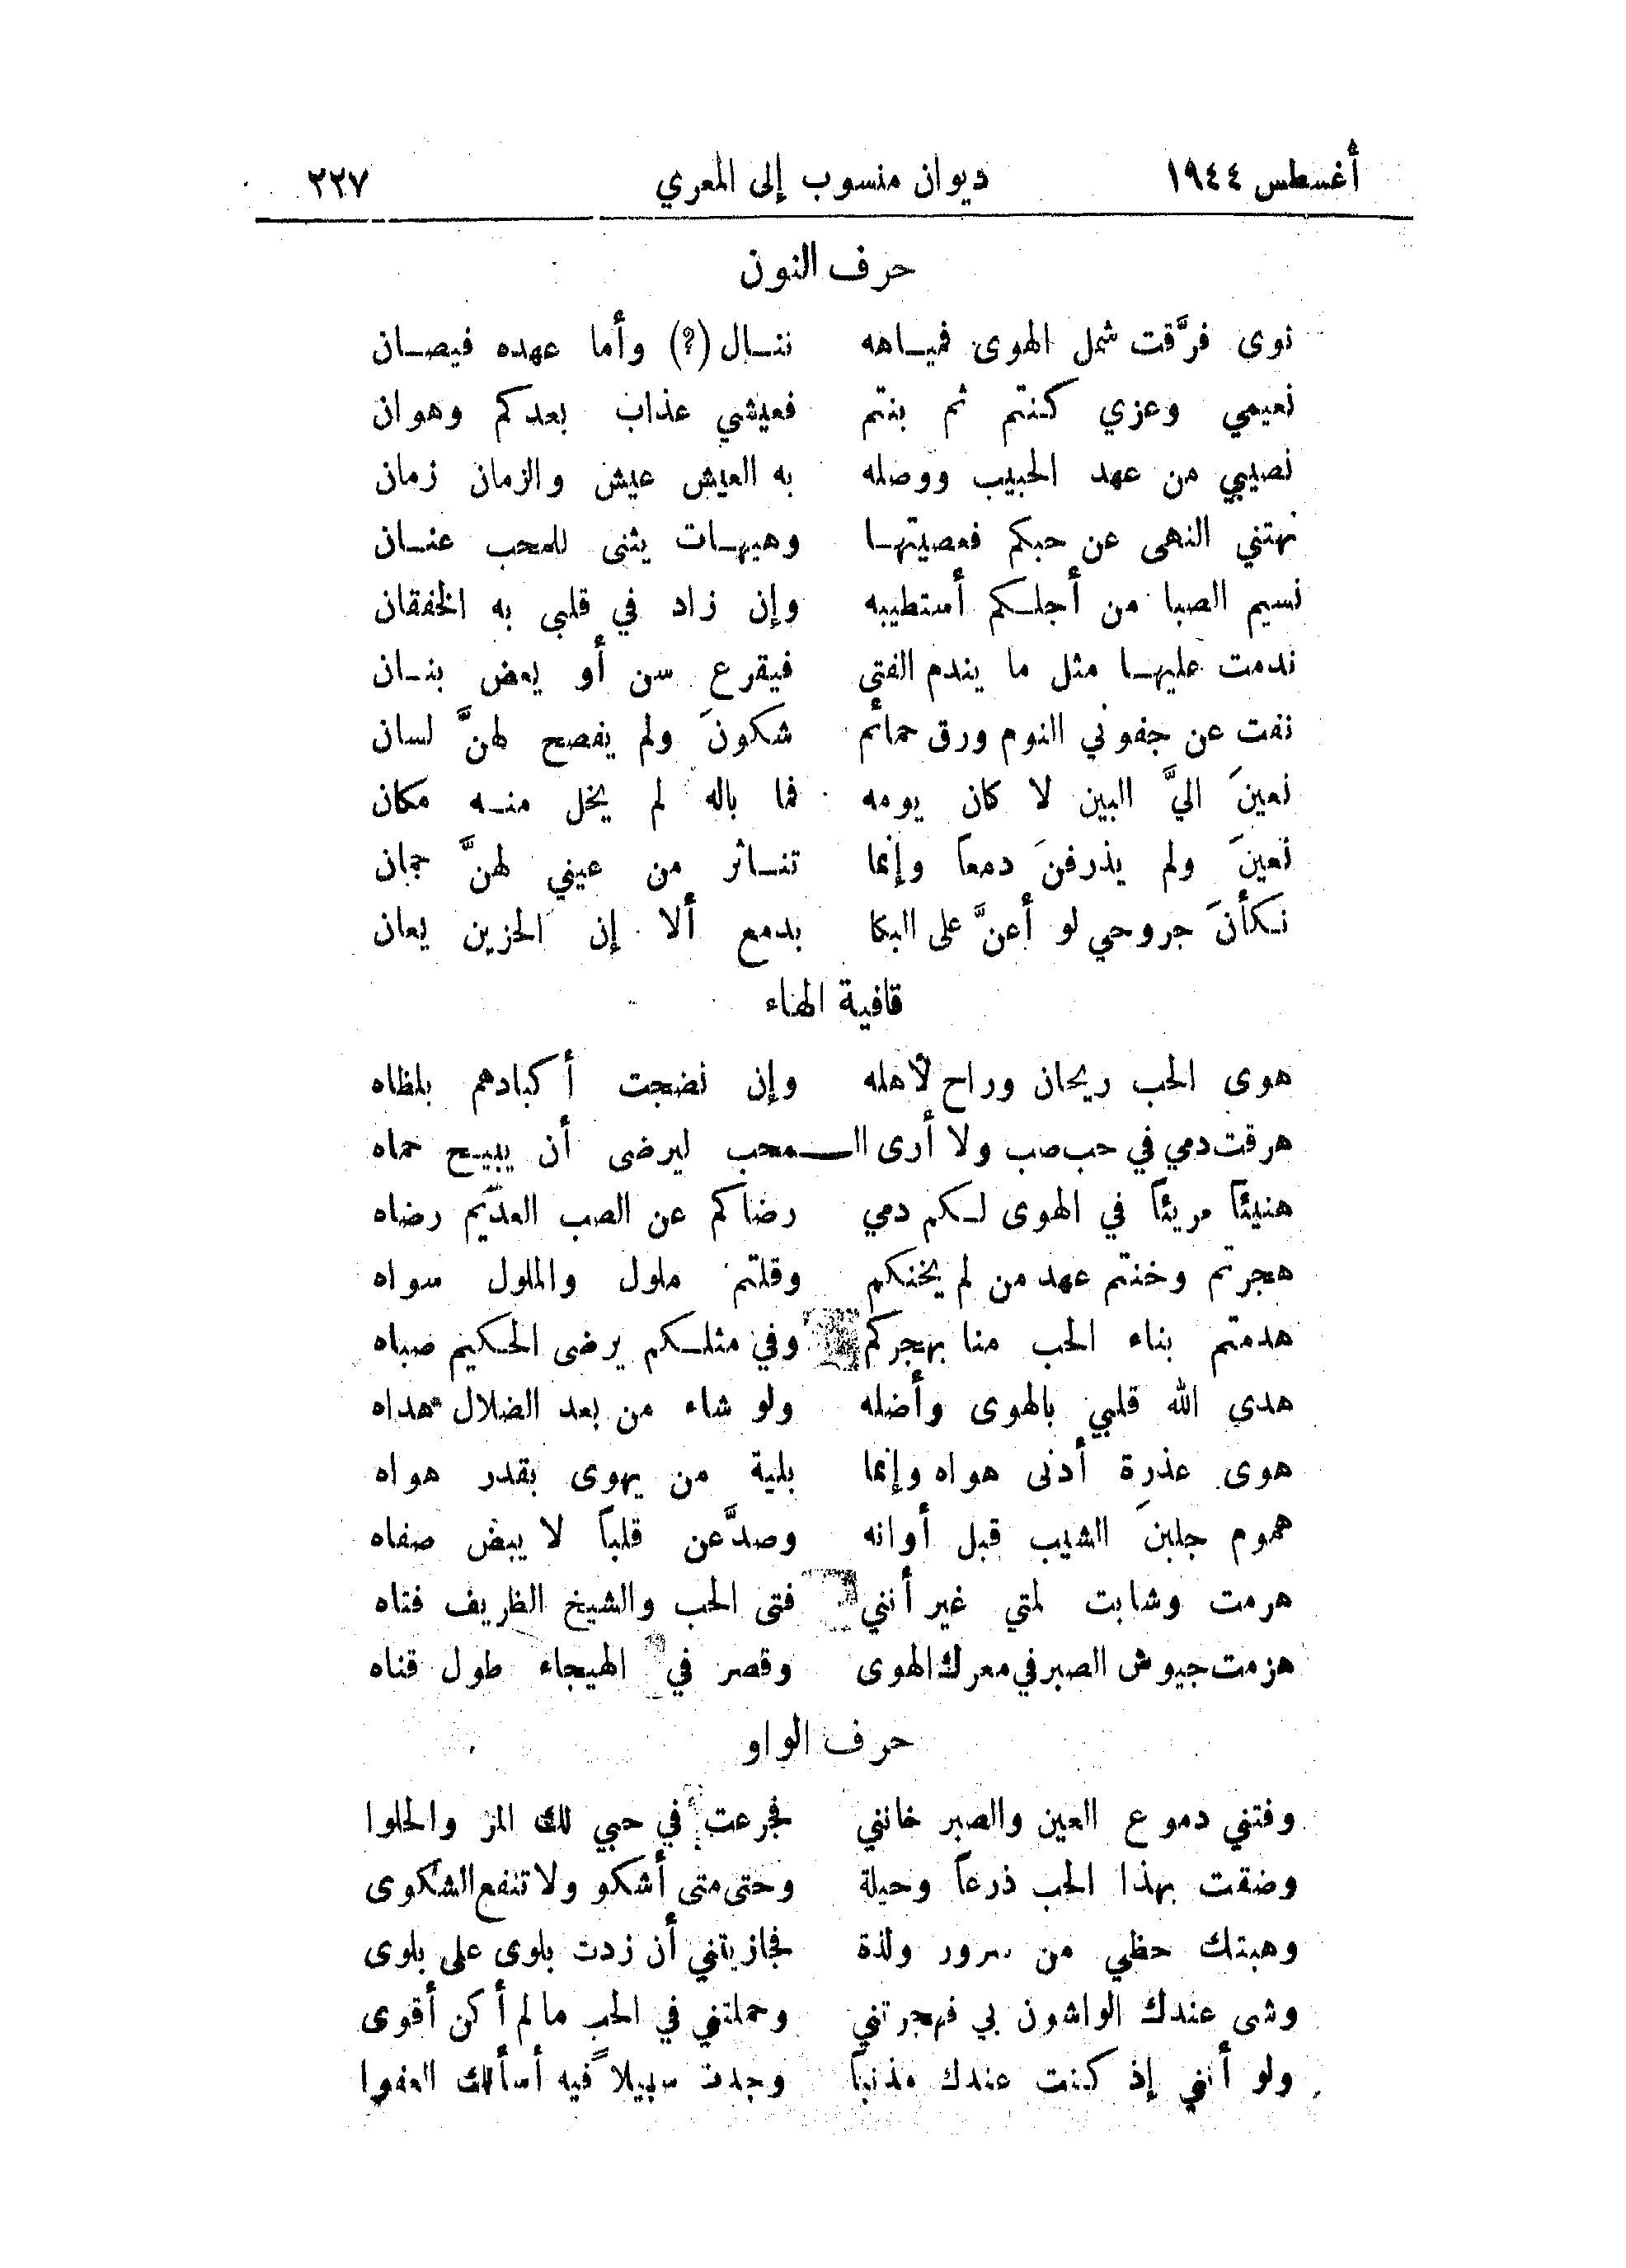 أغسطس ١٩٤٤ ديوان منسوب إلى المعري ٢٢٧
حرف النون
نوى فرَّقت شمل الهوى فمياهه ننال (؟) وأما عهده فيصان
نعيمي وعزي كنتم ثم بنتم فعيشي عذاب بعدكم وهوان
نصيبي من عهد الحبيب ووصله به العيش عيش والزمان زمان
نهتني النهى عن حبكم فعصيتها وهيهات يثنى للمحب عنان
نسيم الصبا من أجلكم أستطيبه وإن زاد في قلبي به الخفقان
ندمت عليها مثل ما يندم الفتى فيقرع سن أو يعض بنان
نفت عن جفوني النوم ورق حمائم شكونَ ولم يفصح لهنَّ لسان
نعينَ اليَّ البين لا كان يومه فما باله لم يخل منه مكان
نعينَ ولم يذرفنَ دمعاً وإنما تناثر من عيني لهنَّ جمان
نكأنَ جروحي لو أعنَّ على البكا بدمع ألا إن الحزين يعان
قافية الهاء
هوى الحب ريحان وراح لأهله وإن نضجت أكبادهم بلظاه
هرقت دمي في حب صب ولا أرى الـمحب ليرضى أن يبيح حماه
هنيئاً مريئاً في الهوى لكم دمي رضاكم عن الصب العديم رضاه
هجرتم وخنتم عهد من لم يخنكم وقلتم ملول والملول سواه
هدمتم بناء الحب منا بهجركم وفي مثلكم يرضى الحكيم صباه
هدي الله قلبي بالهوى وأضله ولو شاء من بعد الضلال هداه
هوى عذرة أدنى هواه وإنما بلية من يهوى بقدر هواه
هموم جلبنَ الشيب قبل أوانه وصدَّعن قلباً لا يبض صفاه
هرمت وشابت لمتي غير أنني فتى الحب والشيخ الظريف فتاه
هزمت جيوش الصبر في معرك الهوى وقصر في الهيجاء طول قناه
حرف الواو
وفتني دموع العين والصبر خانني فجرعت في حبي لك المر والحلوا
وضقت بهذا الحب ذرعاً وحيلة وحتى متى أشكو ولا تنفع الشكوى
وهبتك حظي من سرور ولذة فجازيتني أن زدت بلوى على بلوى
وشى عندك الواشون بي فهجرتني وحملتني في الحب ما لم أكن أقوى
ولو أنني إذ كنت عندك مذنباً وجدت سبيلاً فيه أسألك العفوا